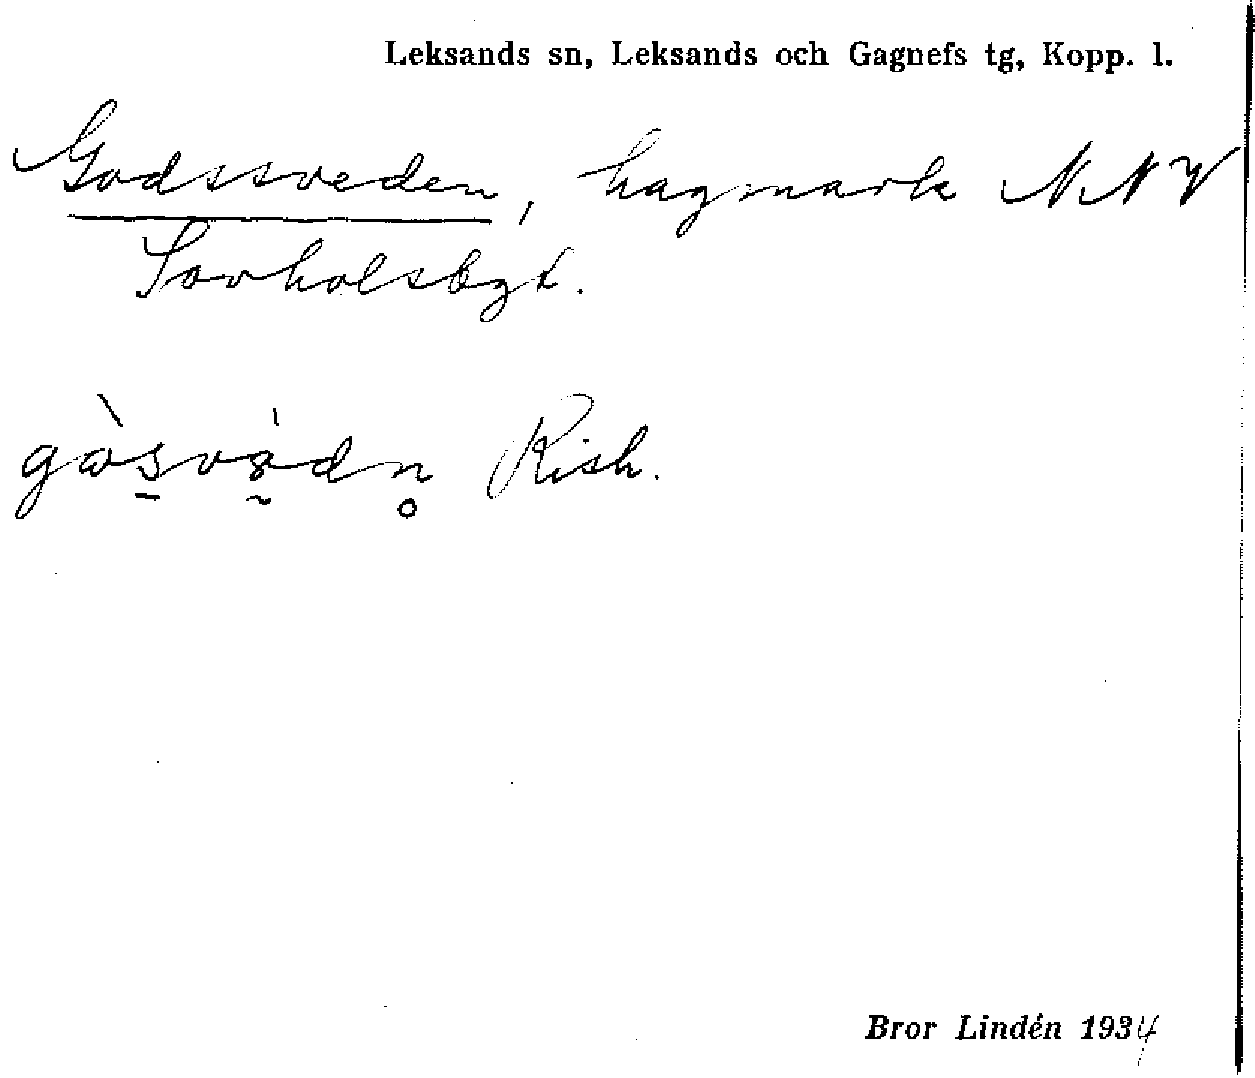 Leksands sn, Leksands och Gagnefs tg, Kopp. l.
Godssveden, hagmark NNV
Sovholsbyt.
Rish.
Bror Lindén 1934